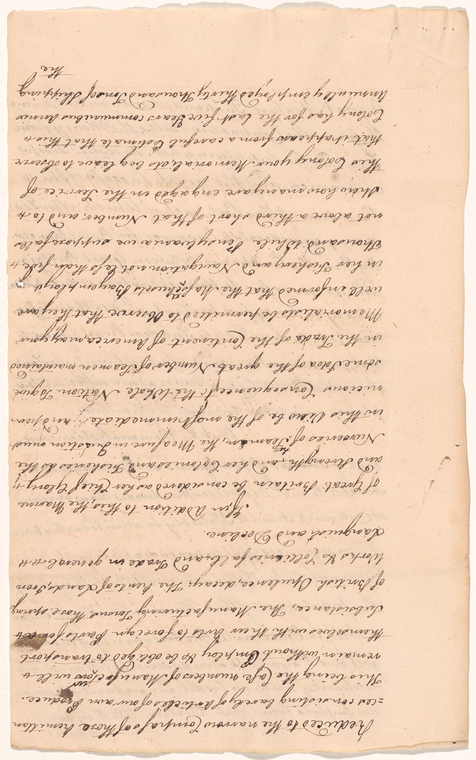 Reduced to the narrow Compass of those Remittan
=ces consisting barely of Articles of our own Produce.
This being the Case numbers of Manufacturers will
remain without Employ & be obliged to transport
themselves with their Arts to foreign Parts for
Subsistance, The Manufacturing Towns, those Springs
of British Opulence, decay; The Rents of Lands Iron
Works & Collieries fall, and Trade in general
Languish and Decline.
If in Addition to this, the Marine
of Great Britain be considered as her Chief Glory
and Strength, and her Colonies and Fisheries as the
Nurseries of Seamen, the Measures in Question must
in this View be of the most immediate and per=
nicious Consequence to the whole Nation. To give
some Idea of the great Number of Seamen maintained
in the Trade of the Continent of America, may your
Memorialists be permitted to Observe that they are
well informed that the Massachusets Bay employs
in her Fishery and Navigation not less than five
thousand, while Pensylvania we suppose falls
not above a third short of that Number, and to
shew how many are engaged in the Service of
this Colony your Memorialists beg leave to observe
that it appears from a careful Estimate that this
Colony has for the last five Years communibus Annis
Annually employed thirty thousand Tons of Shipping
the